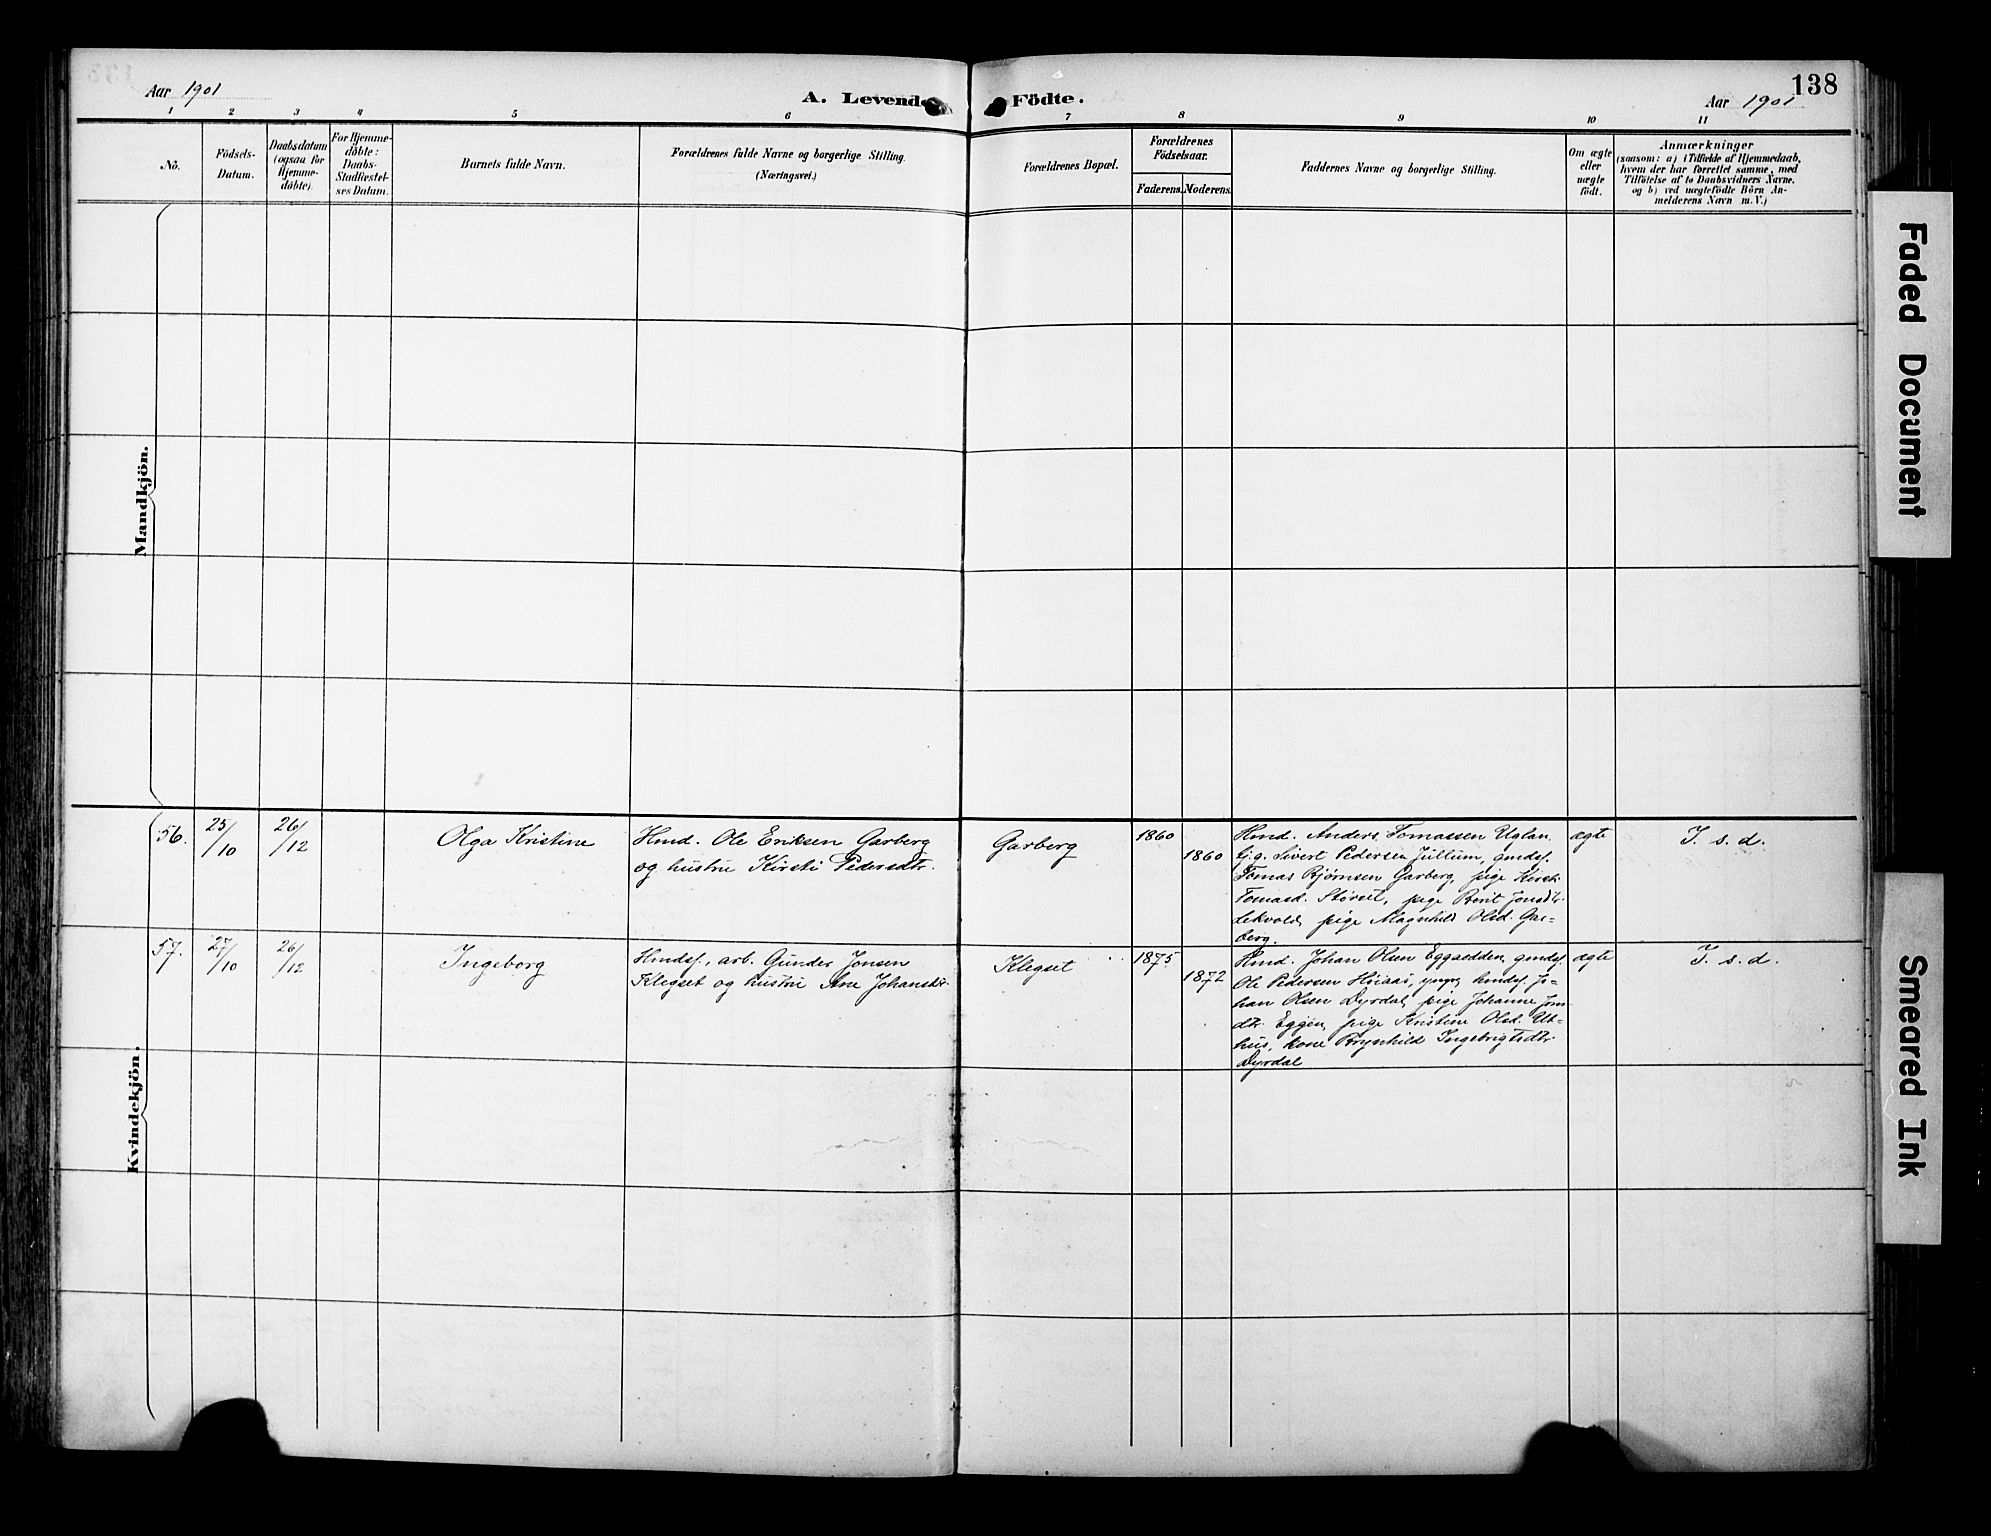 138
Aar 1901
A. Levende Födte.
Aar 1901
1 2 3 4 5 6 7 8 9 10 11
No.
Födsels-
Datum.
Daabsdatum
(ogsaa for
Hjemme-
döbte).
For Hjemme-
döbte:
Daabs-
Stadfestel-
ses Datum.
Barnets fulde Navn.
Forældrenes fulde Navne og borgerlige Stilling.
(Næringsvei.)
Forældrenes Bopæl.
Forældrenes
Födselsaar.
Faderens. Moderens.
Faddernes Navne og borgerlige Stilling.
Om ægte
eller
uægte
födt.
Anmærkninger
(saasom: a) i Tilfælde af Hjemmedaab,
hvem der har forrettet samme, med
Tilföielse af to Daabsvidners Navne.
og b) ved uægtefödte Börn An-
melderens Navn m. V.)
Mandkjön.
Kvindekjön.
56.
25/10
26/12
Olga Kristine
Hmd. Ole Eriksen Garberg
og hustru Kirsti Pedersdtr.
Garberg
1860
1860
Hmd. Anders Tomassen Uglan,
Sivert Pedersen Jullum, gmdsf.
Tomas Bjørnsen Garberg, pige Kirsti
Tomasd. Størset, pige Berit Jonsdtr.
Lekvold, pige Magnhild Olsd. Gar-
berg.
ægte
I. s. d.
57.
27/10
26/12
Ingeborg
Hmdsf., arb. Gunder Jonsen
Klegset og hustru Ane Johansdtr.
Klegset
1875
1872
Hmd. Johan Olsen Eggsedden, gmdsf.
Ole Pedersen Høiaas, yngre, hmdsf. Jo-
han Olsen Dyrdal, pige Johanne Jons-
dtr. Eggen, pige Kristine Olsd. Ut-
hus, kone Brynhild Ingebrigtsdtr.
Dyrdal
ægte
I. s. d.
Faded Document
Smeared Ink